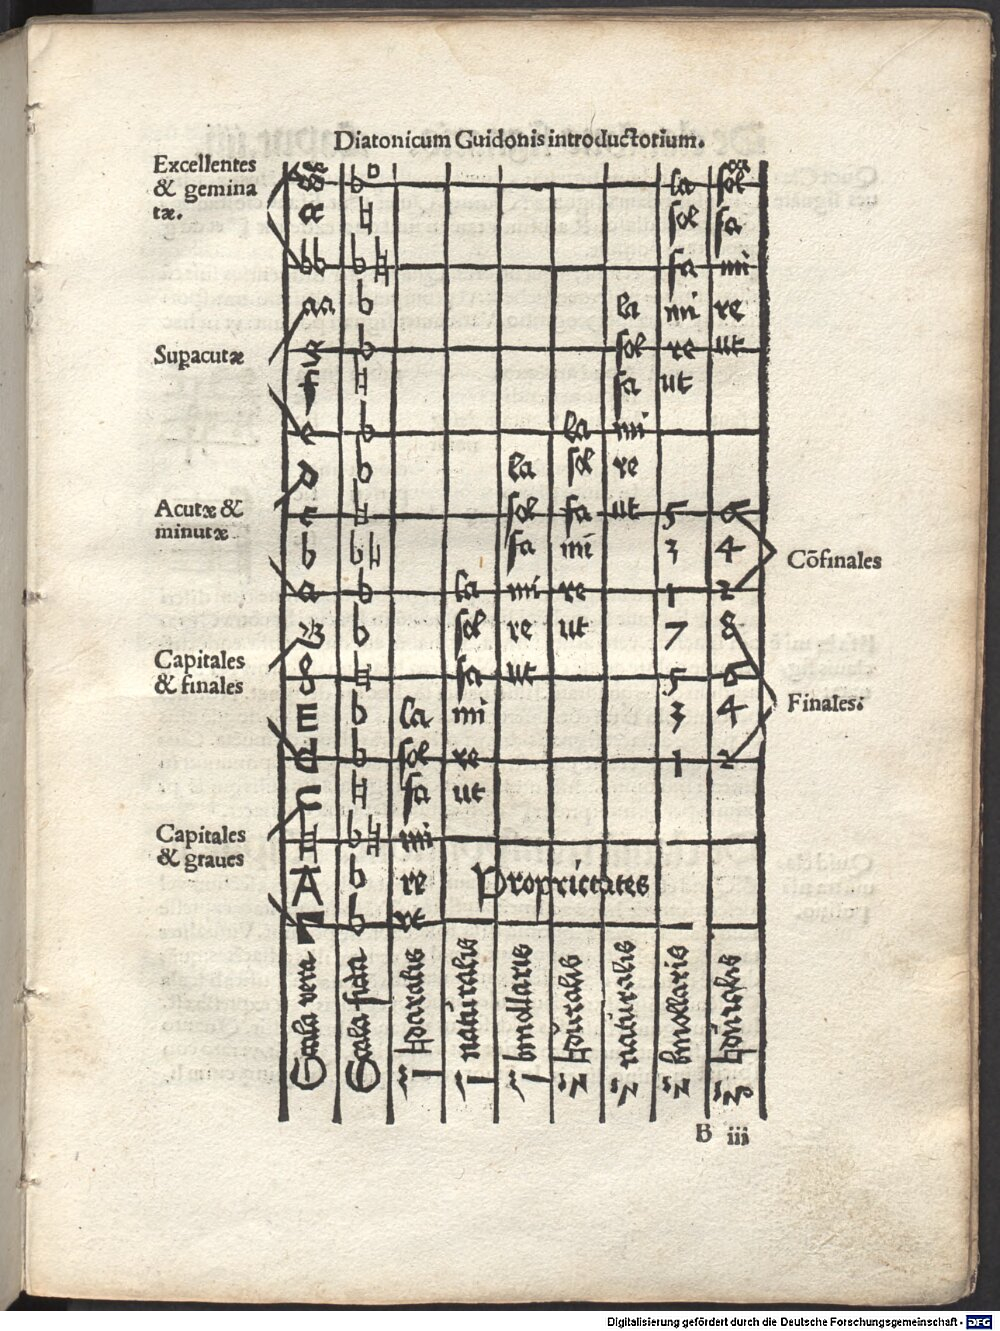 Diatonicum Guidonis introductorium.
Excellentes
& gemina
tæ.
Supacutæ
Acutæ &
minutæ
Capitales
& finales
Capitales
& graues
la sol
a ♮ sol fa
bb b♮ fa mi
aa b la mi re
g b sol re ut
f ♮ fa ut
e b la mi
d b la sol re
c ♮ sol fa ut 5 6
b b♮ fa mi 3 4
a b la mi re 1 2
b sol re ut 7 8
♮ fa ut 5 6
E b la mi 3 4
D b sol re 1 2
C ♮ fa ut
♮ b♮ mi
A b re
Γ b ut
Cōfinales
Finales.
Proprietates
Scala vera
Scala ficta
1 ♮duralis
1 naturalis
1 bmollaris
2 ♮duralis
2 naturalis
2 bmollaris
3 ♮duralis
B iii
Digitalisierung gefördert durch die Deutsche Forschungsgemeinschaft - DFG